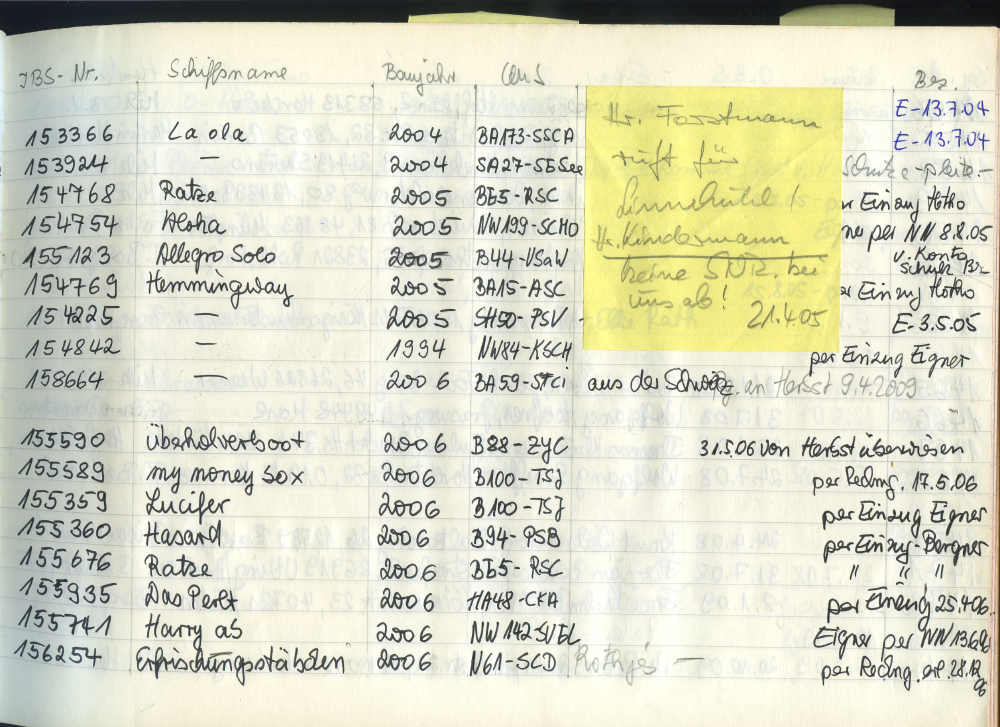 JBS-Nr. Schiffsname Baujahr Club Bez.
E-13.7.04
153366 La ola 2004 BA173-SSCA E-13.7.04
153924 — 2004 SA27-SBSee
154768 Ratze 2005 BE5-RSC Einzug Hotho
154754 Aloha 2005 NW199-SCHO per NN 8.8.05
155123 Allegro Solo 2005 B44-VSaW v. Konto
154769 Hemmingway 2005 BA15-ASC Einzug Hotho
154225 — 2005 SH50-PSV E-3.5.05
154842 — 1994 NW84-KSCH per Einzug Eigner
158664 — 2006 BA59-STCi aus der an Herbst 9.4.2009
155590 Überholverboot 2006 B88-ZYC 31.5.06 von Herbst überwiesen
155589 my money sox 2006 B100-TSJ per Rechng. 17.5.06
155359 Lucifer 2006 B100-TSJ per Einzug Eigner
155360 Hasard 2006 B94-PSB per Einzug-Bergner
155676 Ratze 2006 BE5-RSC " " "
155935 Das Perlt 2006 HA48-CKA per Einzug 25.4.06.
155741 Harry ab 2006 NW142-SVEL Eigner per NN
156254 Erfrischungsstäbchen 2006 N61-SCD — per Rechng. 28.12.
06
Hr. Forstmann
ruft für
!
Hr. Kindesmann
keine SNR. bei
uns ab!
21.4.05